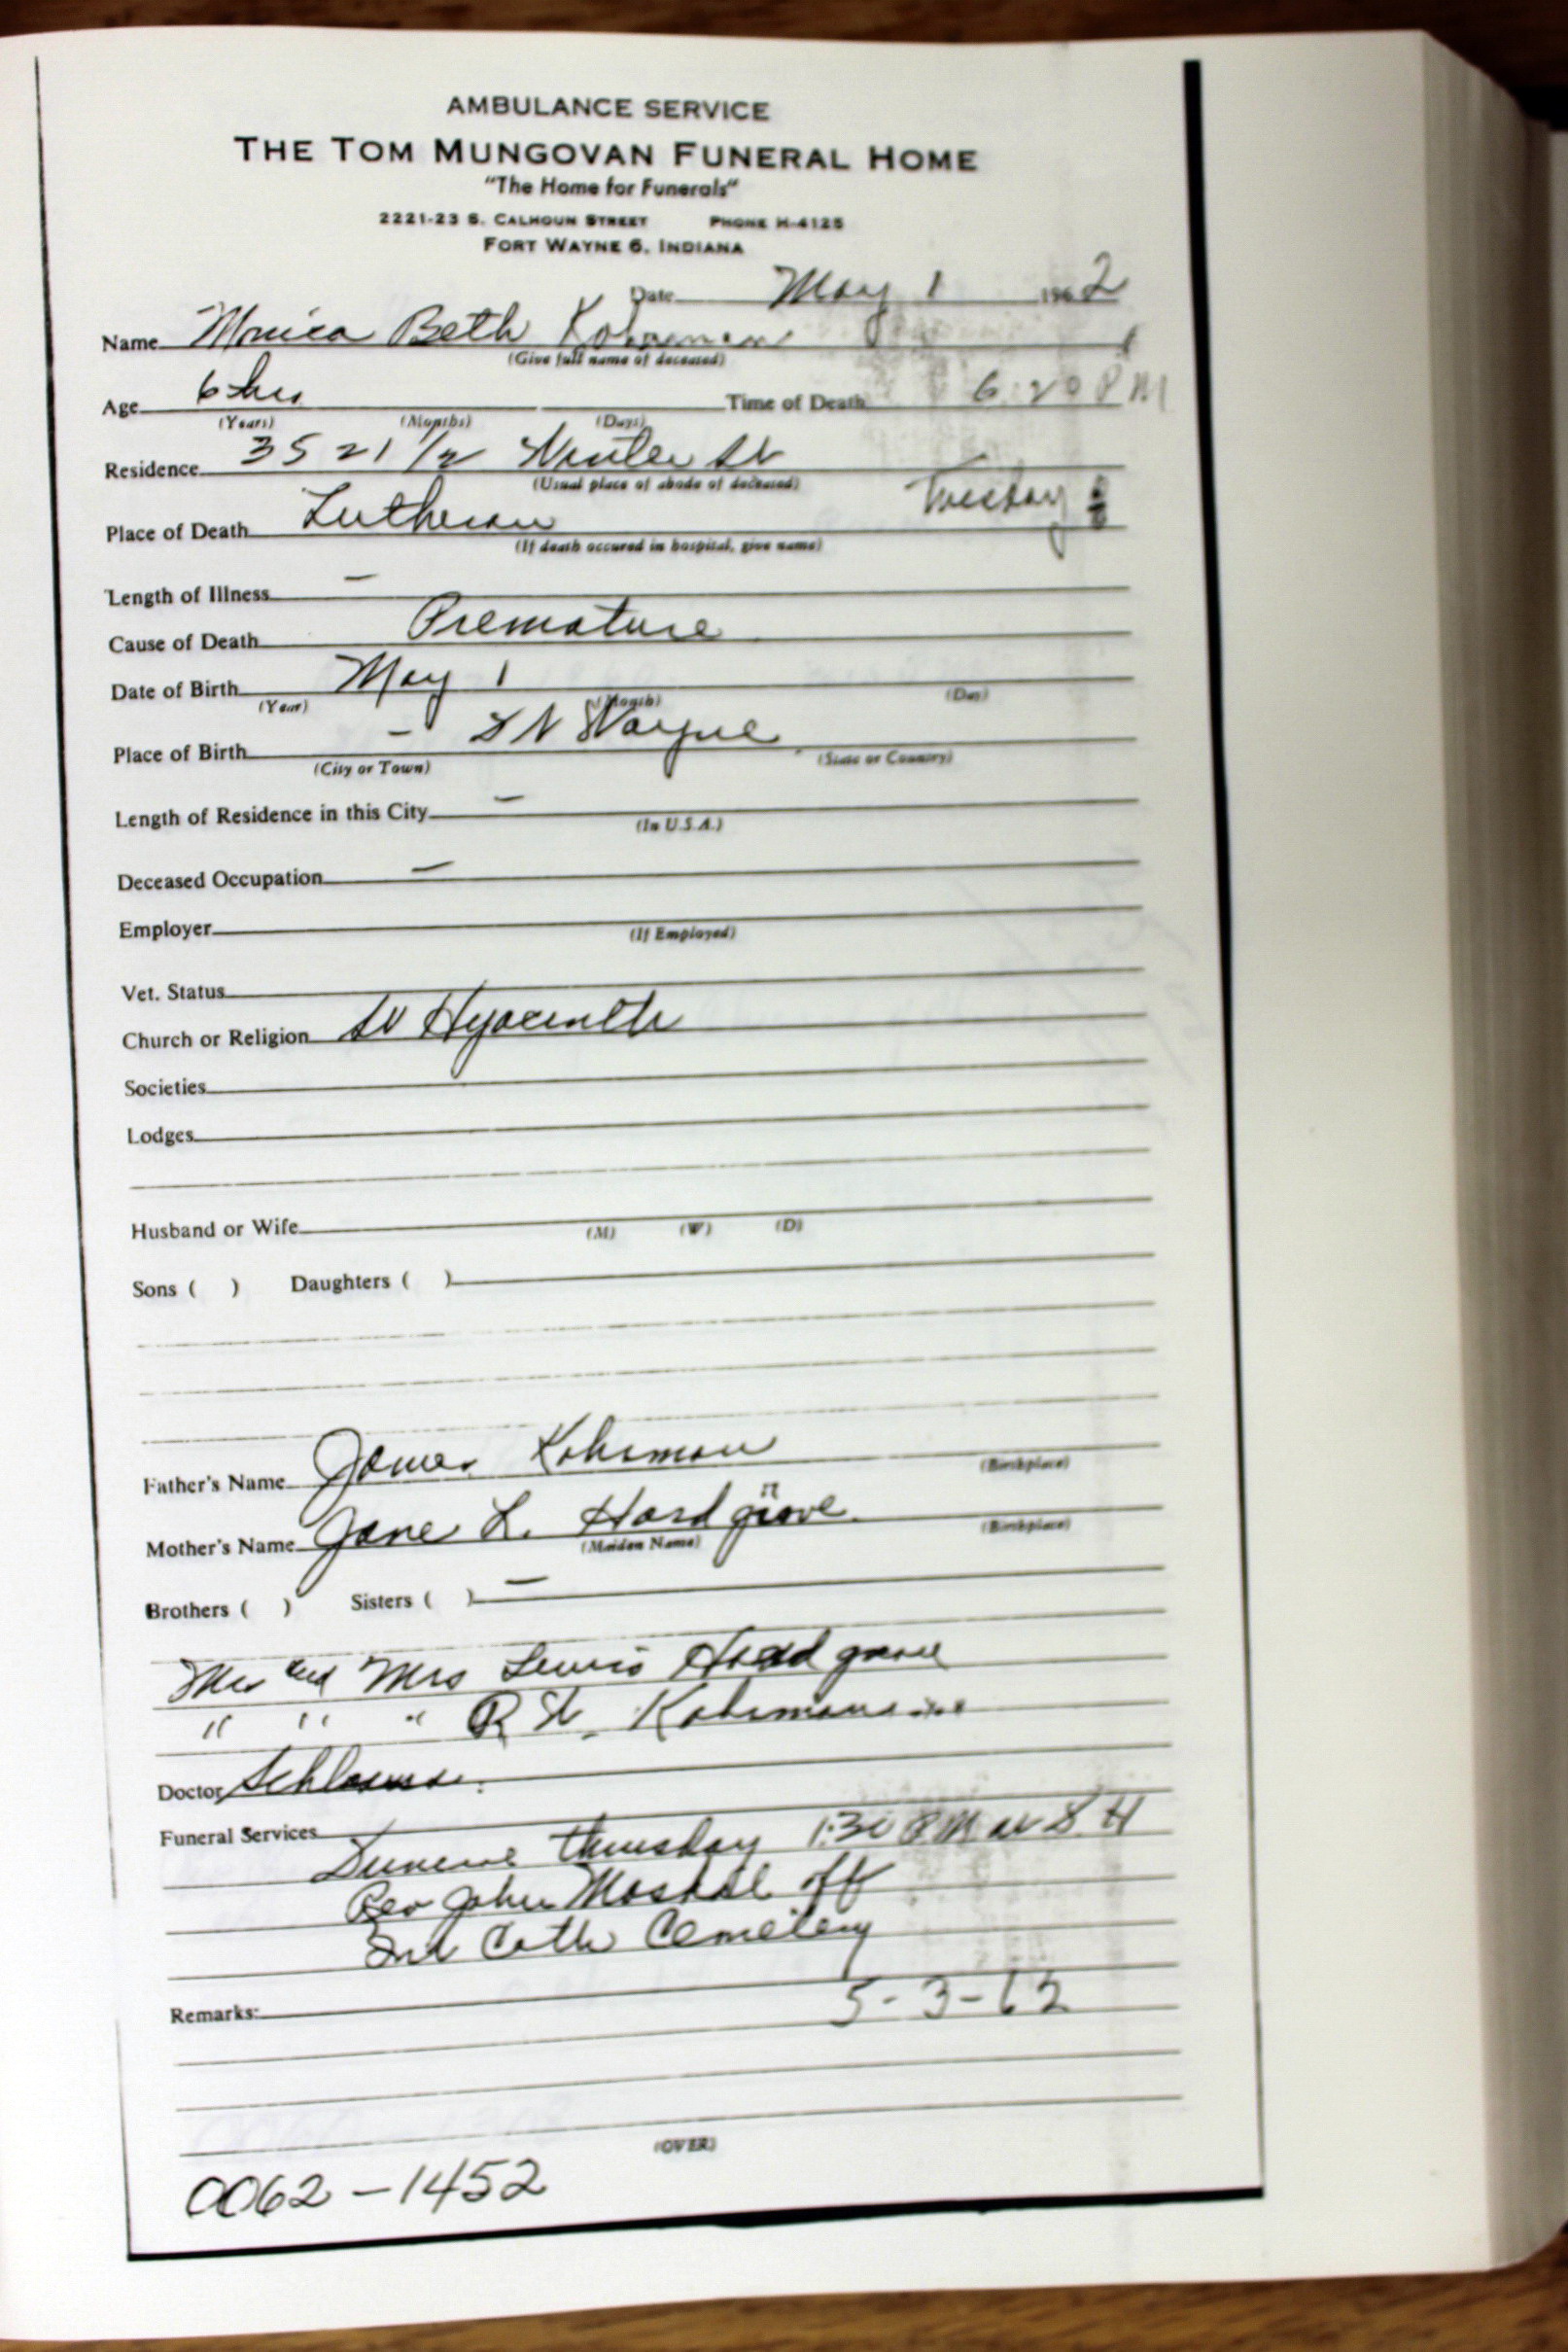 AMBULANCE SERVICE
THE TOM MUNGOVAN FUNERAL HOME
"The Home for Funerals"
2221-23 S. CALHOUN STREET PHONE H-4125
FORT WAYNE 6, INDIANA
Date May 1 1962
Name Monica Beth Kohrman
(Give full name of deceased)
Age 6 hrs Time of Death 6:20 PM
(Years) (Months) (Days)
Residence 3521 1/2 Winter St
(Usual place of abode of deceased)
Tuesday
Place of Death Lutheran
(If death occured in hospital, give name)
Length of Illness –
Cause of Death Premature
Date of Birth May 1
(Year) (Month) (Day)
Place of Birth – Ft Wayne
(City or Town) (State or Country)
Length of Residence in this City –
(In U.S.A.)
Deceased Occupation –
Employer
(If Employed)
Vet. Status
Church or Religion St Hyacinth
Societies
Lodges
Husband or Wife
(M) (W) (D)
Sons ( ) Daughters ( )
Father's Name James Kohrman (Birthplace)
Mother's Name Jane L. Hardgrove (Birthplace)
(Maiden Name)
Brothers ( ) Sisters ( ) –
Mr and Mrs Lewis Hardgrove
" " " R Kohrman
Doctor
Funeral Services
Thursday 1:30 PM at
Rev John off
Cath Cemetery
5-3-62
Remarks:
(OVER)
0062-1452